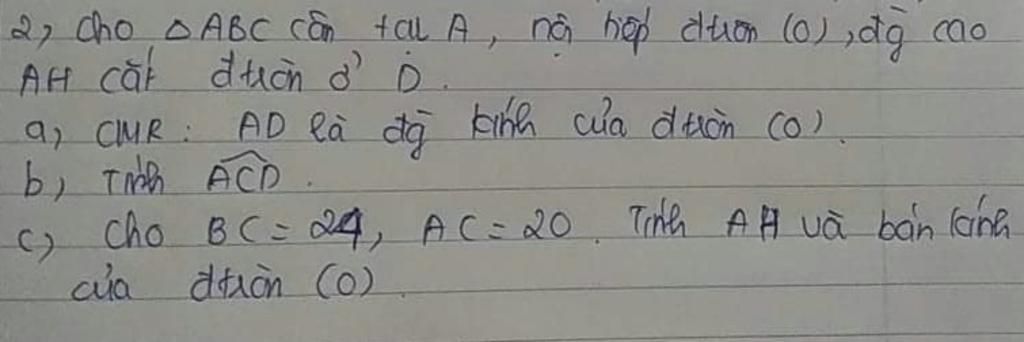 2, Cho △ABC cân tại A, nội tiếp đtròn (O), đg cao
AH cắt đtròn ở D.
a, CMR: AD là đg kính của đtròn (O).
b, Tính ACD.
c, Cho BC = 24, AC = 20. Tính AH và bán kính
của đtròn (O).